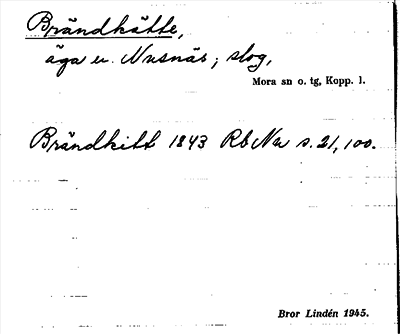 Brändkätte,
äga u. Nusnäs; slog,
Mora sn o. tg, Kopp. l.
Brändkitt 1843 Rb Na s. 21, 100.
Bror Lindén 1945.